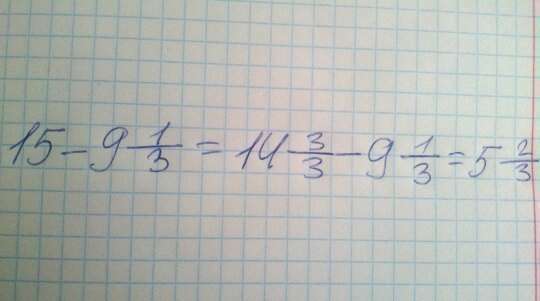 15 - 9 1/3 = 14 3/3 - 9 1/3 = 5 2/3